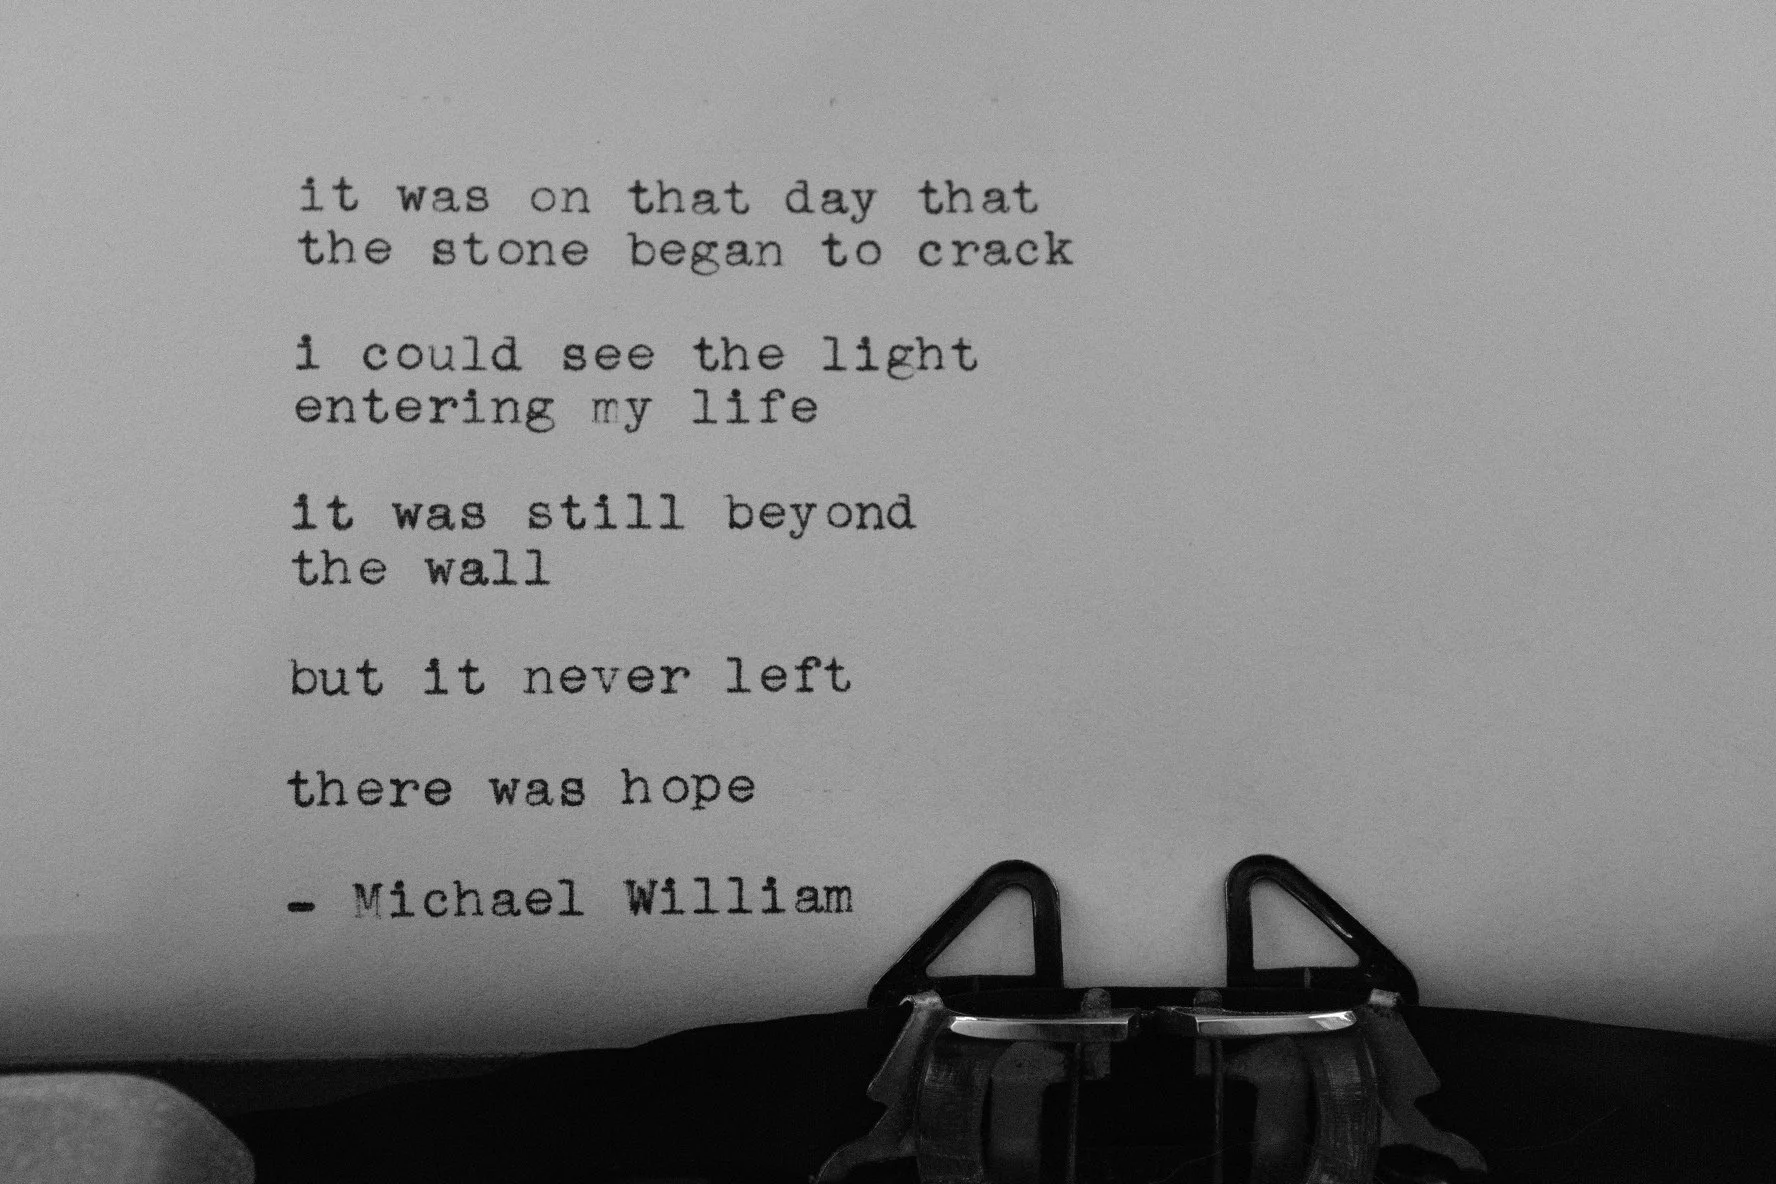 it was on that day that
the stone began to crack
i could see the light
entering my life
it was still beyond
the wall
but it never left
there was hope
- Michael William